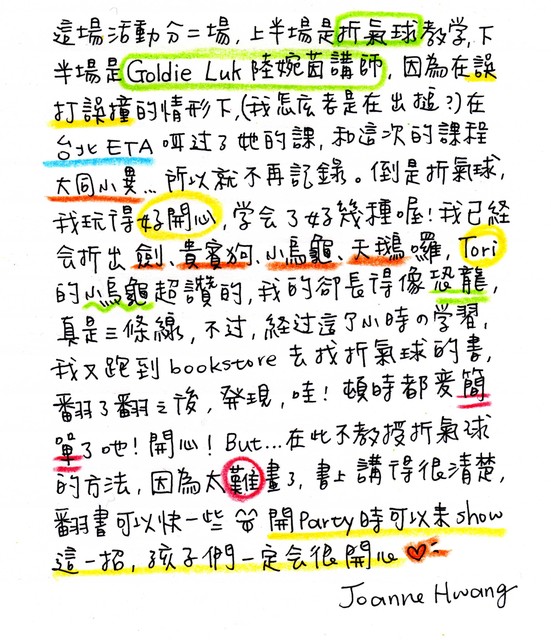 這場活動分二場，上半場是折氣球教学，下
半場是Goldie Luk 陸婉茵講師，因為在誤
打誤撞的情形下，(我怎庅老是在出搥？)在
台北ETA 呷过了她的課，和這次的課程
大同小異… 所以就不再記錄。倒是折氣球，
我玩得好開心，学会了好幾種喔！我已経
会折出 劍、貴賓狗、小烏龜、天鵝囉，Tori
的小烏龜超讚的，我的卻長得像恐龍，
真是三條線，不过，経过這了小時の学習，
我又跑到bookstore 去找折氣球的書，
翻了翻之後，發現，哇！頓時都変簡
單了吔！開心！But… 在此不教授折氣球
的方法，因為太難畫了，書上講得很清楚，
翻書可以快一些 開Party時可以来show
這一招，孩子們一定会很開心
Joanne Hwang